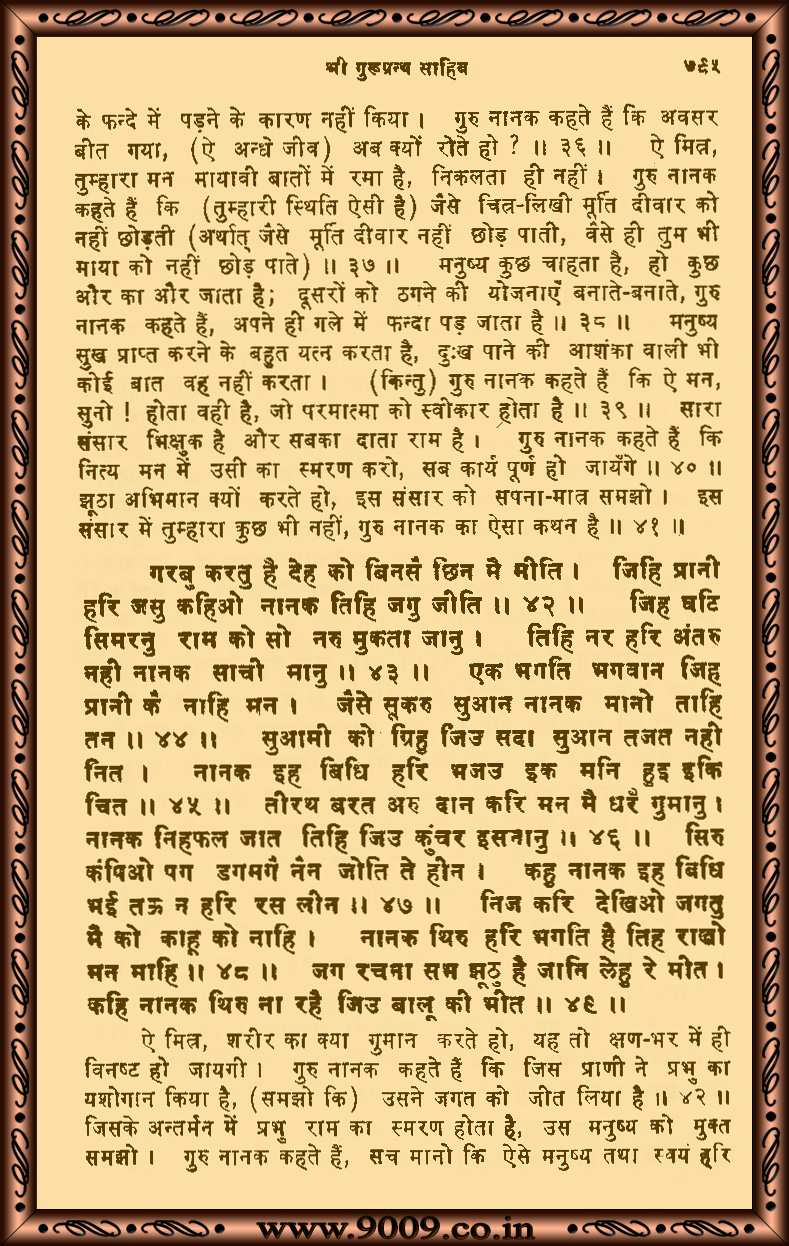 श्री गुरूग्रन्थ साहिब ७९५
के फन्दे में पड़ने के कारण नहीं किया। गुरु नानक कहते हैं कि अवसर
बीत गया, (ऐ अन्धे जीव) अब क्यों रोते हो ? ॥ ३६ ॥ ऐ मित्र,
तुम्हारा मन मायावी बातों में रमा है, निकलता ही नहीं। गुरु नानक
कहते हैं कि (तुम्हारी स्थिति ऐसी है) जैसे चित्र-लिखी मूर्ति दीवार को
नहीं छोड़ती (अर्थात् जैसे मूर्ति दीवार नहीं छोड़ पाती, वैसे ही तुम भी
माया को नहीं छोड़ पाते) ॥ ३७ ॥ मनुष्य कुछ चाहता है, हो कुछ
और का और जाता है; दूसरों को ठगने की योजनाएँ बनाते-बनाते, गुरु
नानक कहते हैं, अपने ही गले में फन्दा पड़ जाता है ॥ ३८ ॥ मनुष्य
सुख प्राप्त करने के बहुत यत्न करता है, दुःख पाने की आशंका वाली भी
कोई बात वह नहीं करता। (किन्तु) गुरु नानक कहते हैं कि ऐ मन,
सुनो ! होता वही है, जो परमात्मा को स्वीकार होता है ॥ ३९ ॥ सारा
संसार भिक्षुक है और सबका दाता राम है। गुरु नानक कहते हैं कि
नित्य मन में उसी का स्मरण करो, सब कार्य पूर्ण हो जायँगे ॥ ४० ॥
झूठा अभिमान क्यों करते हो, इस संसार को सपना-मात्र समझो। इस
संसार में तुम्हारा कुछ भी नहीं, गुरु नानक का ऐसा कथन है ॥ ४१ ॥
गरबु करतु है देह को बिनसै छिन मै मीति। जिहि प्रानी
हरि जसु कहिओ नानक तिहि जगु जीति ॥ ४२ ॥ जिह घटि
सिमरनु राम को सो नरु मुकता जानु। तिहि नर हरि अंतरु
नही नानक साची मानु ॥ ४३ ॥ एक भगति भगवान जिह
प्रानी कै नाहि मन। जैसे सूकरु सुआन नानक मानो ताहि
तन ॥ ४४ ॥ सुआमी को ग्रिहु जिउ सदा सुआन तजत नही
नित। नानक इह बिधि हरि भजउ इक मनि हुइ इकि
चित ॥ ४५ ॥ तीरथ बरत अरु दान करि मन मै धरै गुमानु।
नानक निहफल जात तिहि जिउ कुंचर इसनानु ॥ ४६ ॥ सिरु
कंपिओ पग डगमगै नैन जोति ते हीन। कहु नानक इह बिधि
भई तऊ न हरि रस लीन ॥ ४७ ॥ निज करि देखिओ जगतु
मै को काहू को नाहि। नानक थिरु हरि भगति है तिह राखो
मन माहि ॥ ४८ ॥ जग रचना सभ झूठु है जानि लेहु रे मीत।
कहि नानक थिरु ना रहै जिउ बालू की भीत ॥ ४९ ॥
ऐ मित्र, शरीर का क्या गुमान करते हो, यह तो क्षण-भर में ही
विनष्ट हो जायगी। गुरु नानक कहते हैं कि जिस प्राणी ने प्रभु का
यशोगान किया है, (समझो कि) उसने जगत को जीत लिया है ॥ ४२ ॥
जिसके अन्तर्मन में प्रभु राम का स्मरण होता है, उस मनुष्य को मुक्त
समझो। गुरु नानक कहते हैं, सच मानो कि ऐसे मनुष्य तथा स्वयं हरि
www.9009.co.in